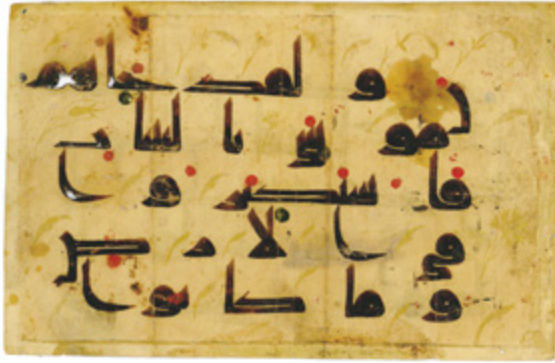 ن ولقد جاهم
موسى بالبينت
فاستكبروا
في الارض
وما كانوا